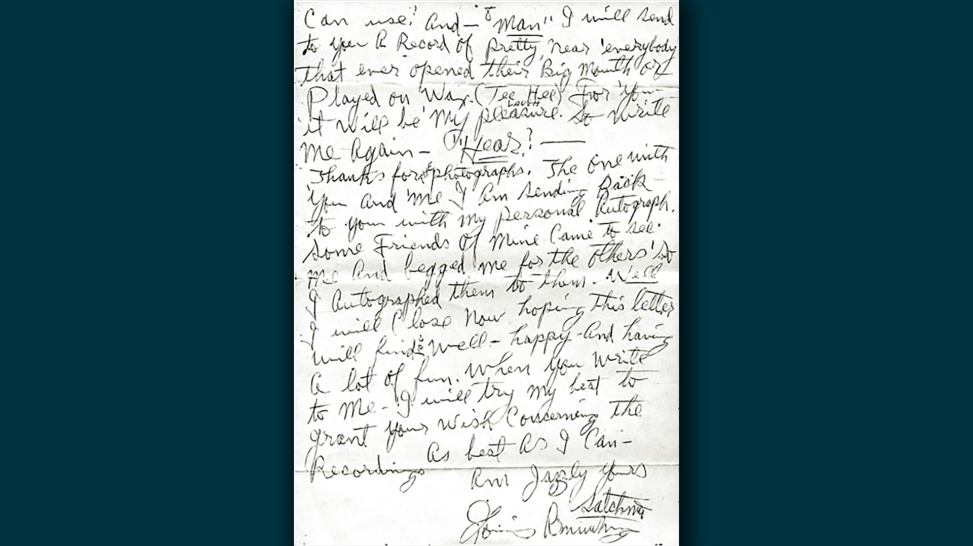 Can use? And — "Man" I will send
to you A Record of pretty near 'everybody
that ever opened their Big Mouth or
Played on Wax. (Tee Hee) For 'You
it will be' My pleasure. So write
LAUGH
Me Again — "Hear? —
Thanks for the photographs. The One with
'You And 'Me I Am sending Back
to you with My personal Autograph.
Some Friends of Mine Came to see'
Me And begged me for the others 'so
I Autographed them to them. Well
I will Close Now hoping this letter
will find you Well — happy - And having
A lot of fun. When you Write
to Me - I will try My best to
grant your Wish Concerning the
Recordings As best As I Can —
Am Jazzly yours
Satchmo
Louis Armstrong